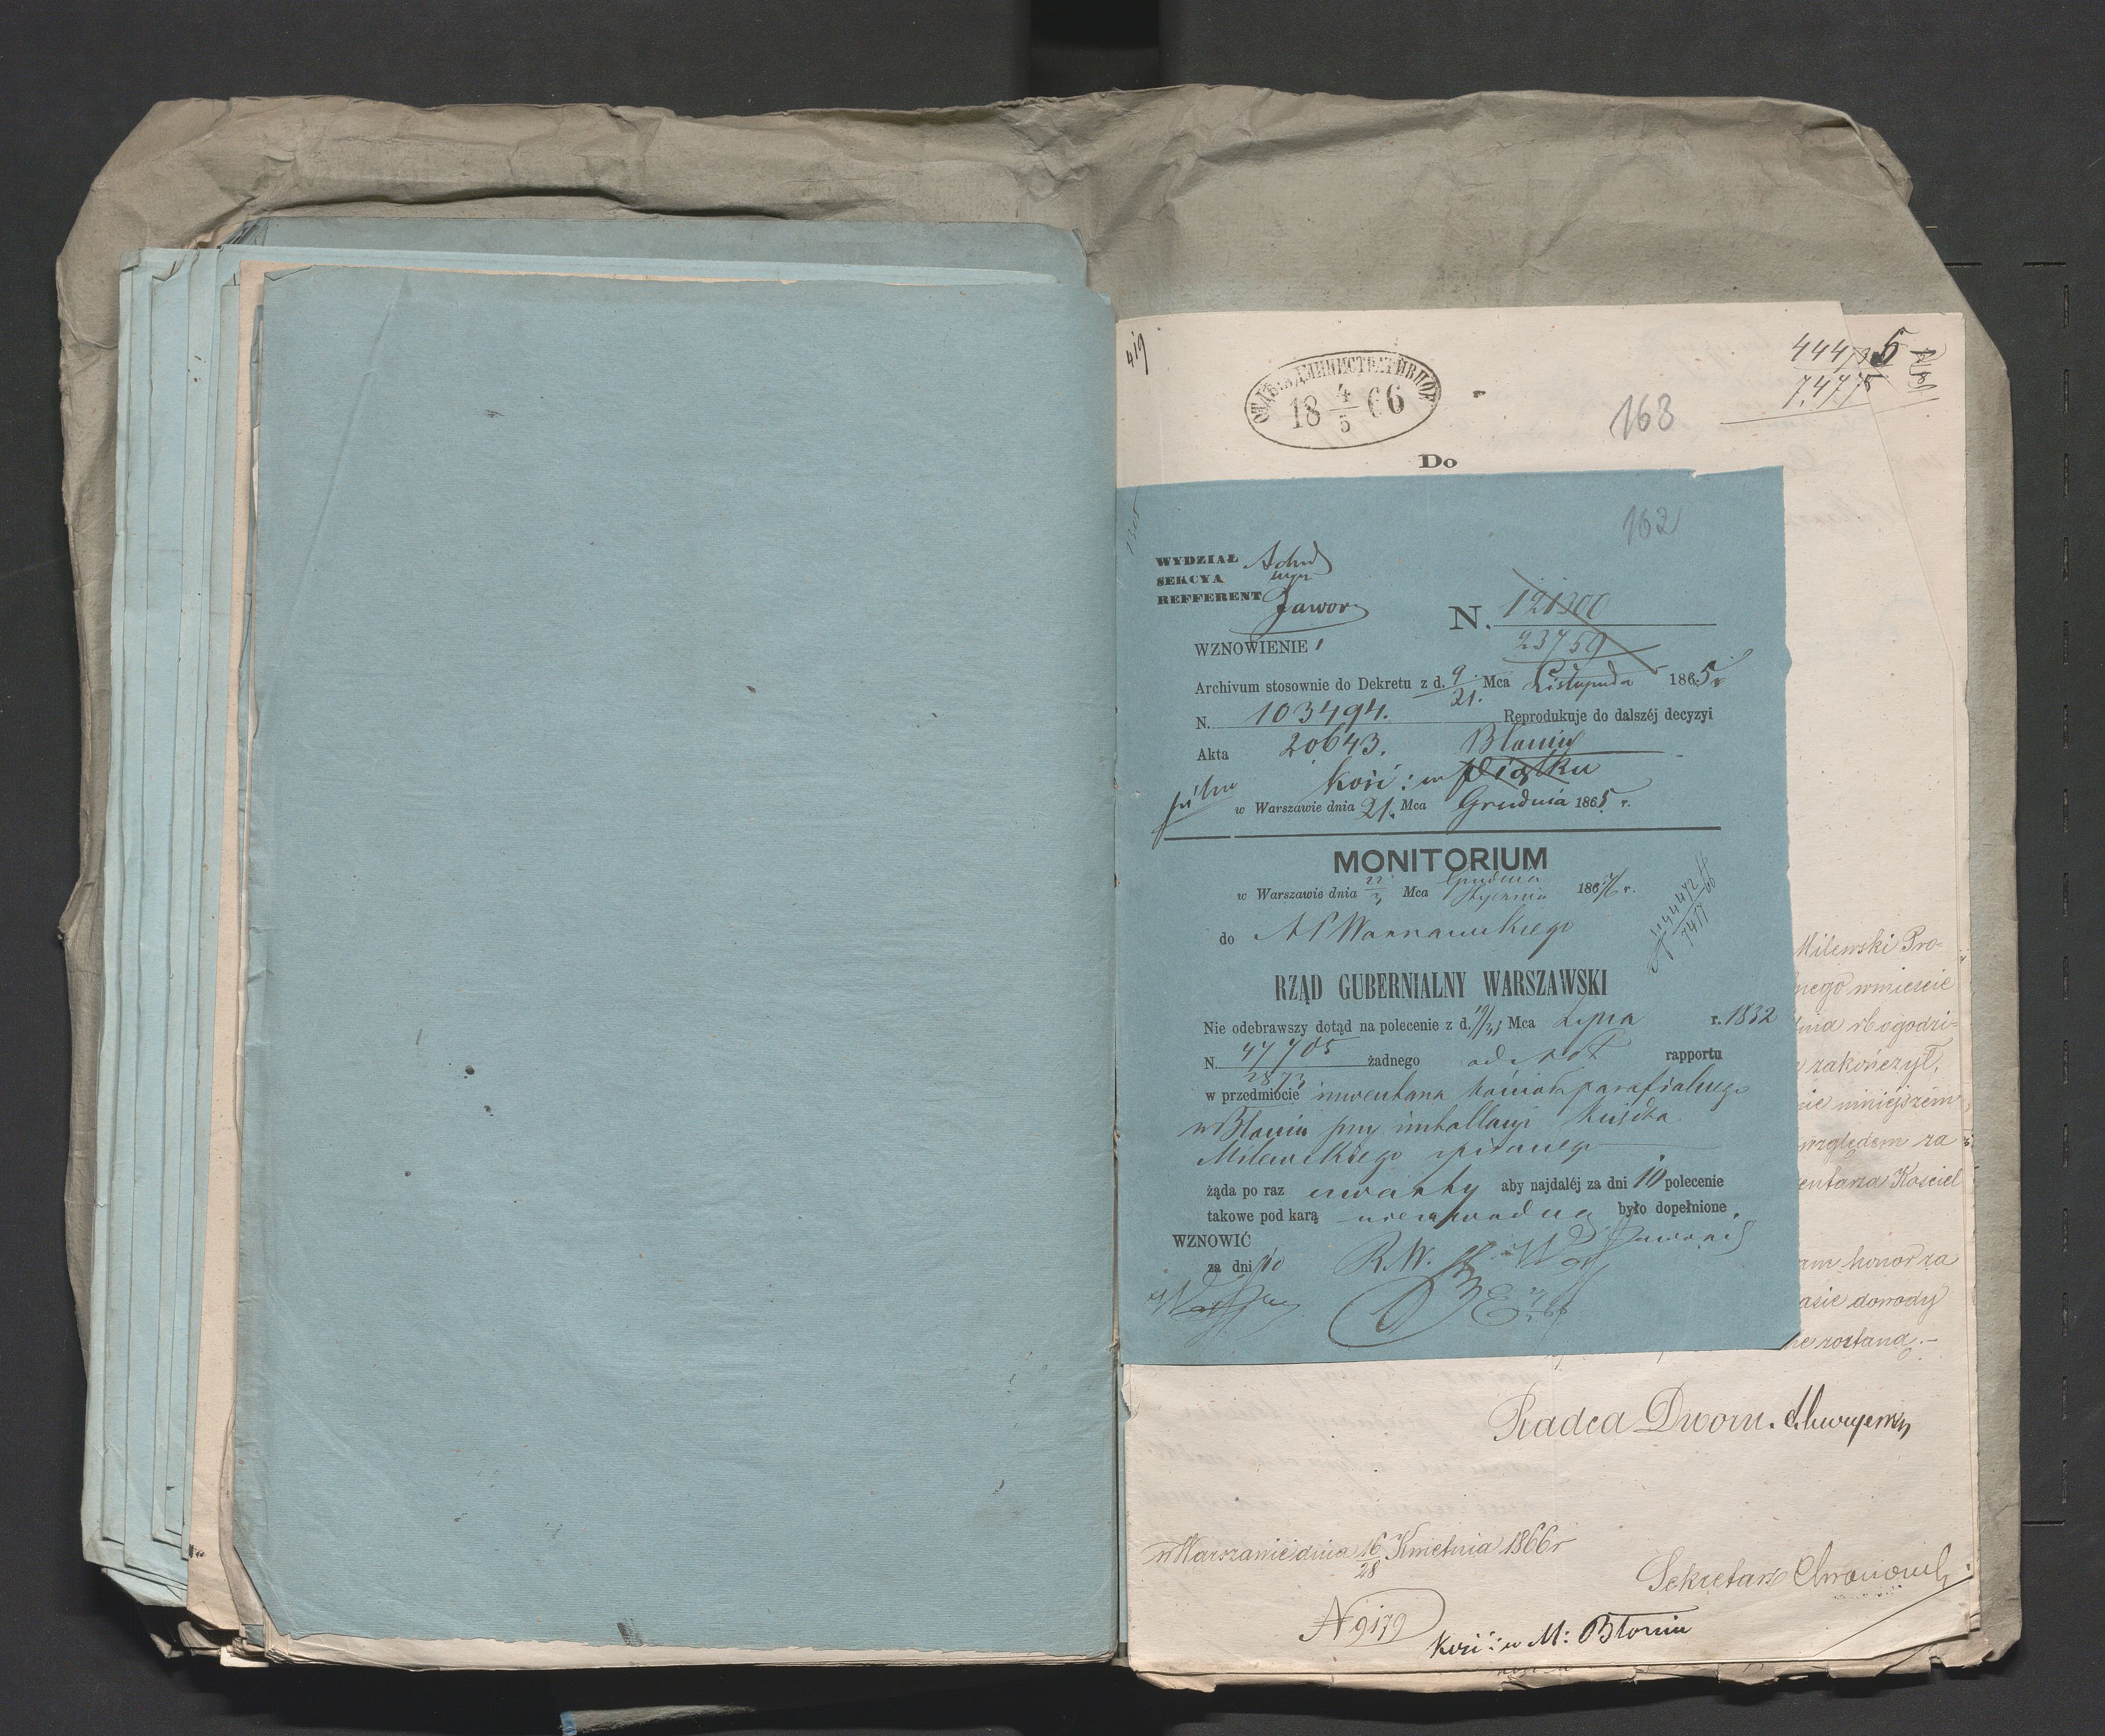 419
ОТДѢЛ. АДМИНИСТРАТИВНОЕ
18 4/5 66
5
7477
163
Do
162
WYDZIAŁ Admi
SEKCYA
REFFERENT Jawor
N. 121300
23750
WZNOWIENIE 1
Archivum stosownie do Dekretu z d. 9/21. Mca Listopada 1865 r
N. 103494. Reprodukuje do dalszéj decyzyi
Akta 20643. Błoniu
Kość: w Piątku
pilne
w Warszawie dnia 21. Mca Grudnia 1865 r.
MONITORIUM
w Warszawie dnia 22/3 Mca Grudnia/Stycznia 186 r.
do NP Warszawskiego
RZĄD GUBERNIALNY WARSZAWSKI
Nie odebrawszy dotąd na polecenie z d. 19/31 Mca Lipca r. 1832
N. 47705/2873 żadnego rapportu
w przedmiocie inwentarza kościoła parafialnego
w Błoniu przy installacyi księdza
Milewskiego spisanego
żąda po raz czwarty aby najdaléj za dni 10 polecenie
takowe pod karą było dopełnione.
WZNOWIĆ
za dni 10
R. W.
Milewski Pro-
nego wmieście
zakończył,
nie niniejszém
względem za
entarza Kościel
am honor za
asie dowody
ne zostaną.-
Radca Dworu.
w Warszawie dnia 16/28 Kwietnia 1866 r
Sekretarz
N 9179
Kość: w M: Błoniu